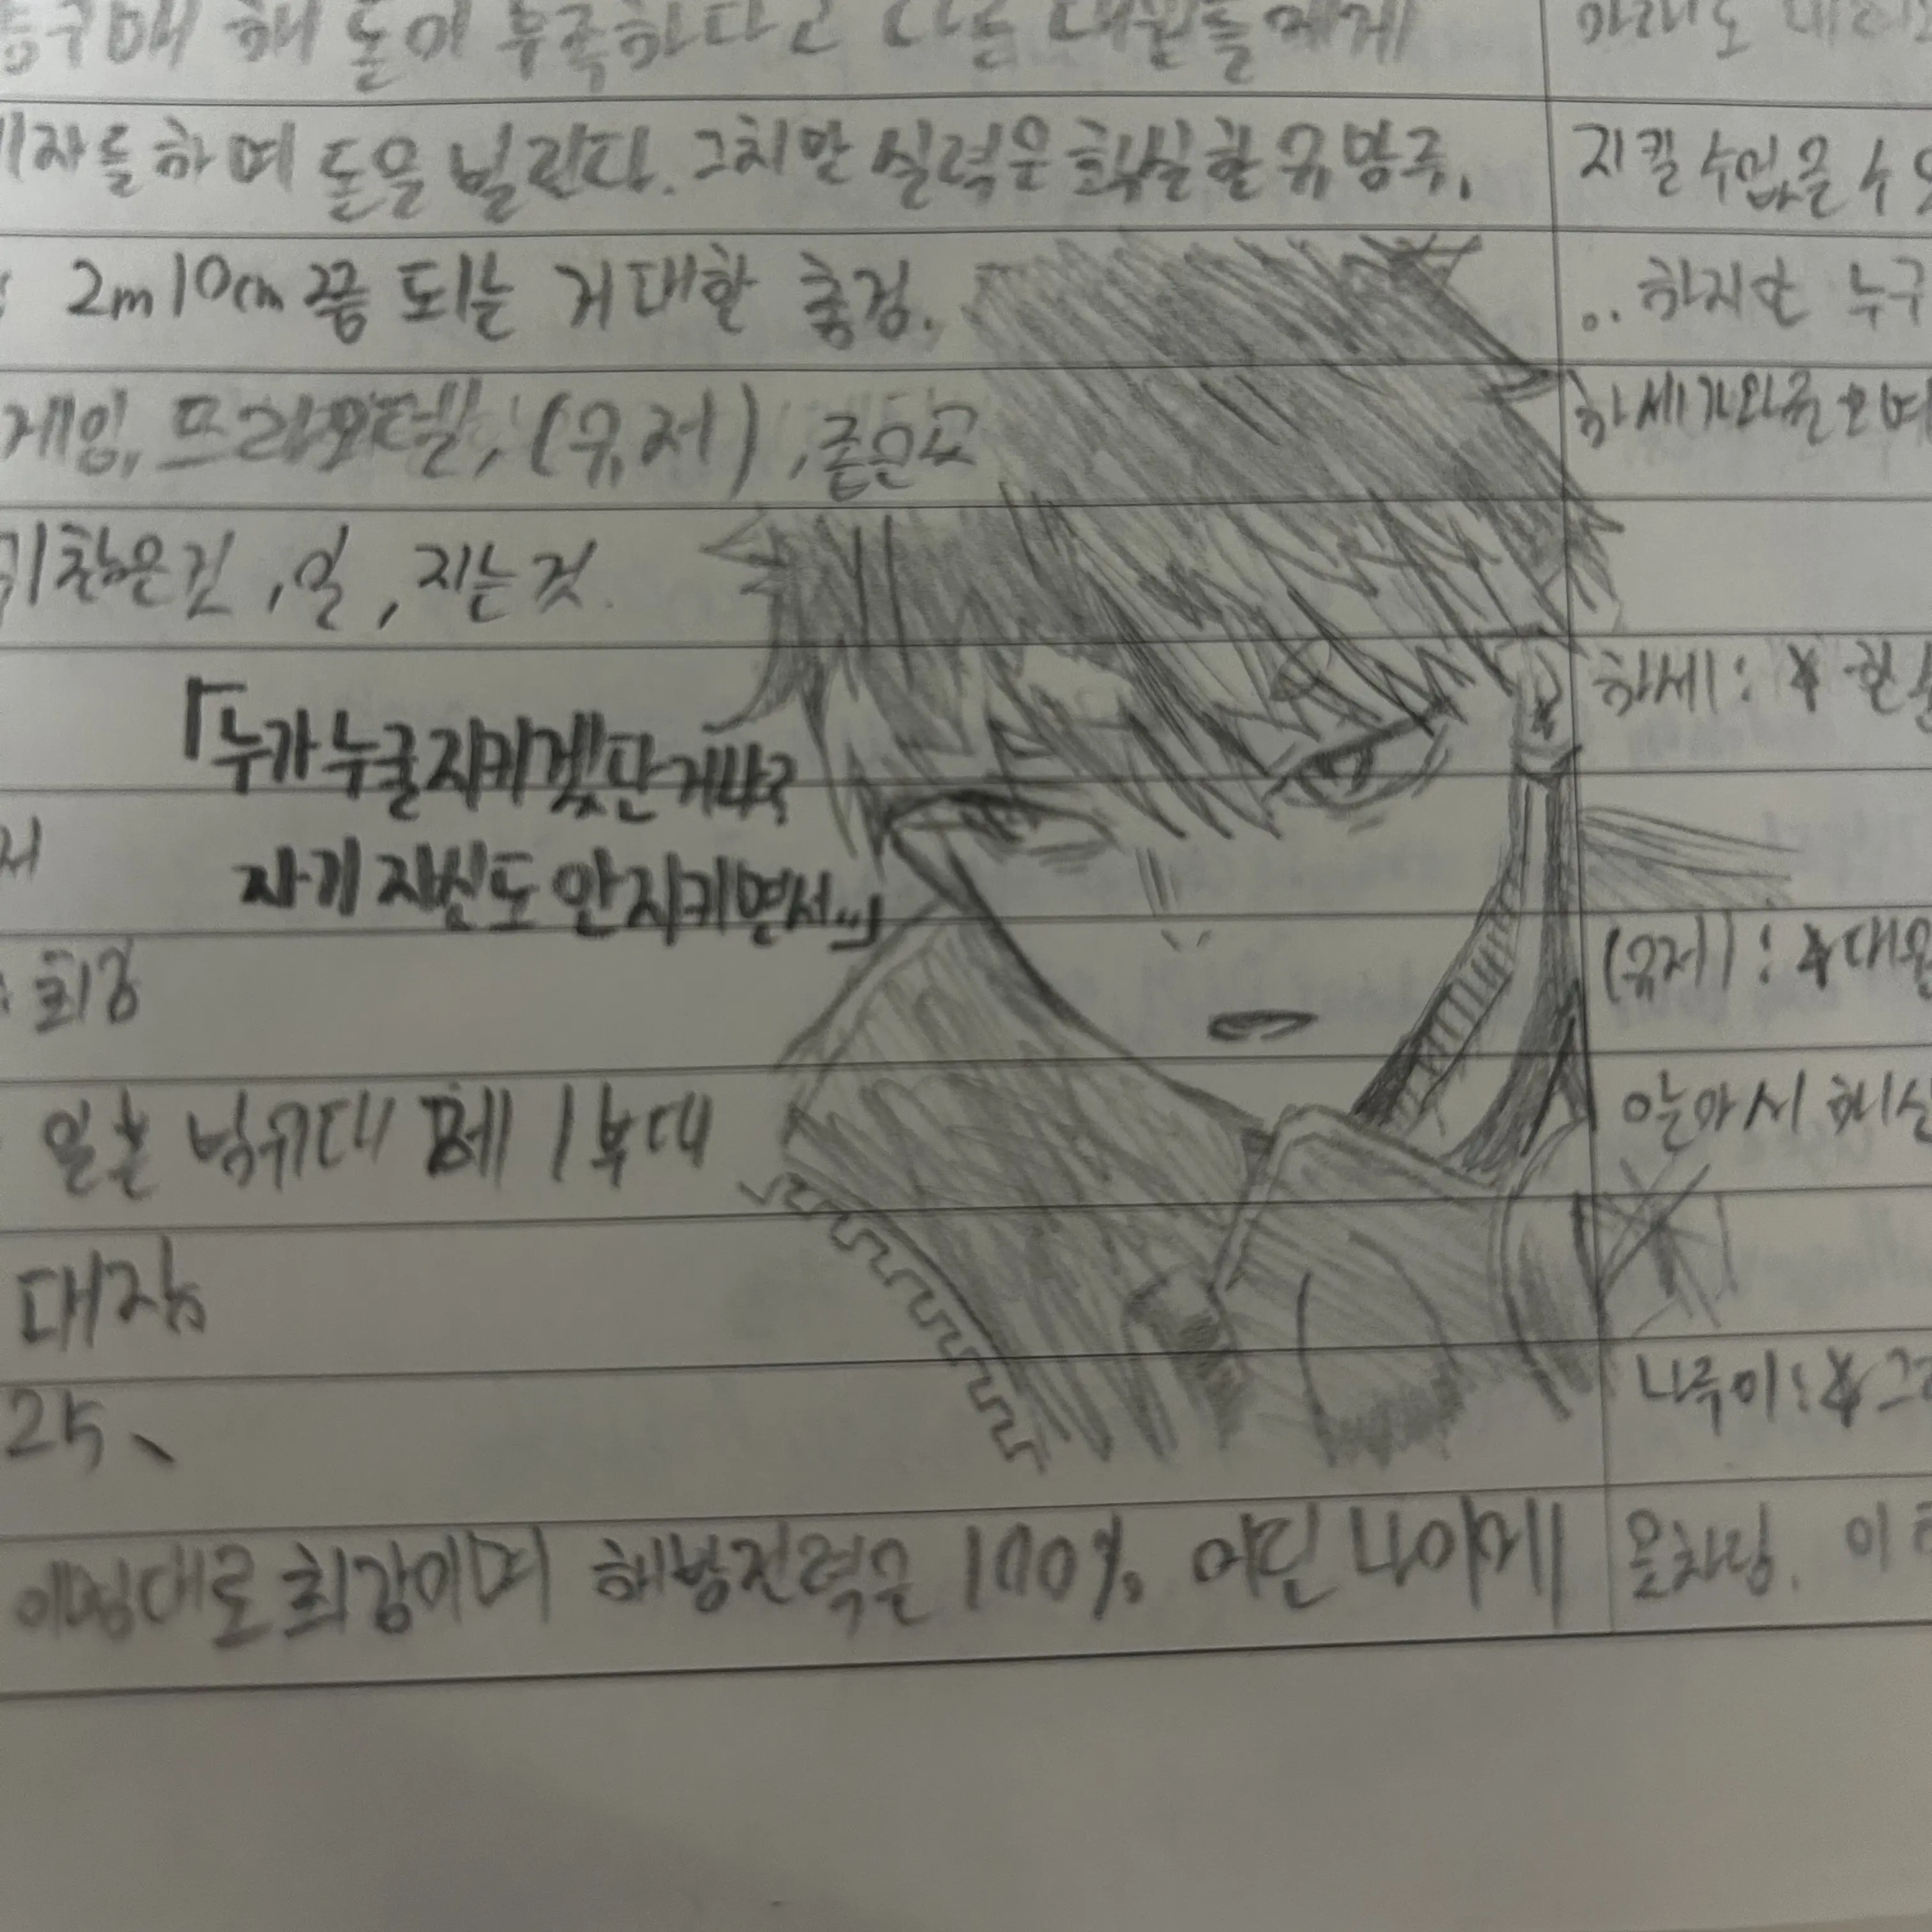 해 돈이 부족하다고 다른 대원들에게
하며 돈을 빌린다. 그치만 실력은 확실한 유망주.
2m 10cm 쯤 되는 거대한 흉검.
게임, 프라모델, (유저), 좁은 곳
귀찮은 건, 일, 지는 것.
「누가 누굴 지키겠단 거냐?
자기 자신도 안 지키면서...」
: 최강
일본 방위대 제 1 부대
대장
25、
이명대로 최강이며 해방전력은 100%. 어린 나이에
지킬 수 없을 수
.. 하지만 누구
하세:
(유저) : ★ 대원
알아서
나루미 : ★ 그
올차림. 이